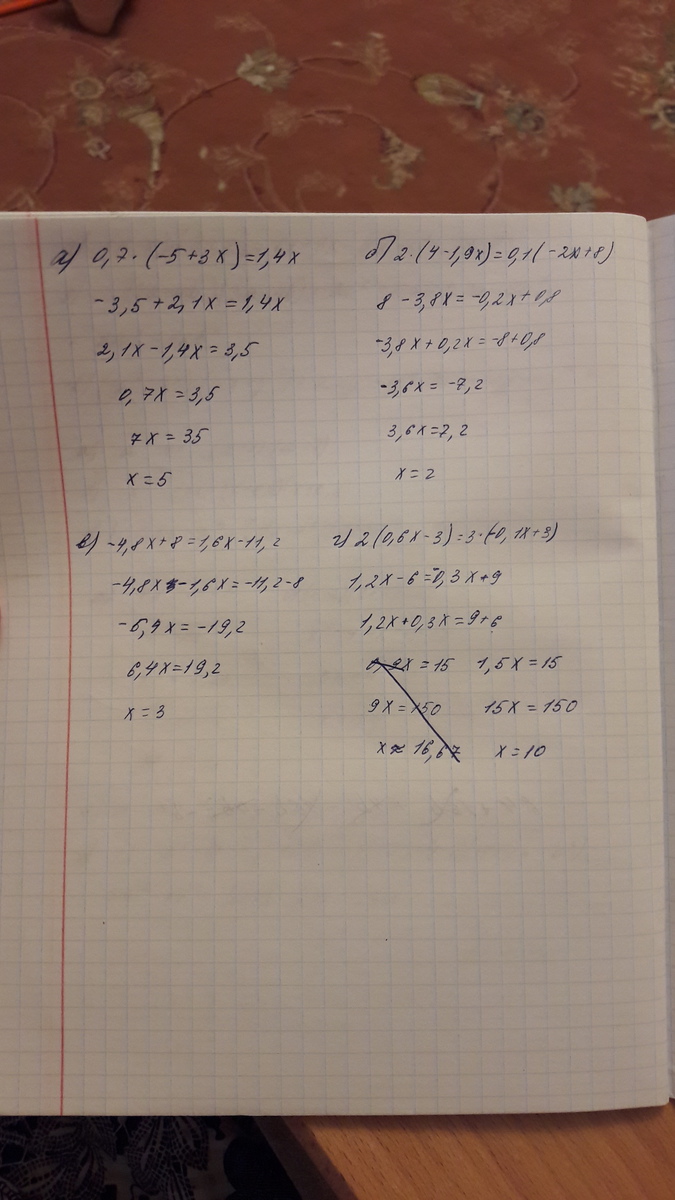 а) 0,7·(-5+3x)=1,4x
-3,5+2,1x=1,4x
2,1x-1,4x=3,5
0,7x=3,5
7x=35
x=5
б) 2·(4-1,9x)=0,1(-2x+8)
8-3,8x=-0,2x+0,8
-3,8x+0,2x=-8+0,8
-3,6x=-7,2
3,6x=7,2
x=2
в) -4,8x+8=1,6x-11,2
-4,8x-1,6x=-11,2-8
-6,4x=-19,2
6,4x=19,2
x=3
г) 2(0,6x-3)=3·(-0,1x+3)
1,2x-6=-0,3x+9
1,2x+0,3x=9+6
0,9x=15 1,5x=15
9x=150 15x=150
x≈16,67 x=10